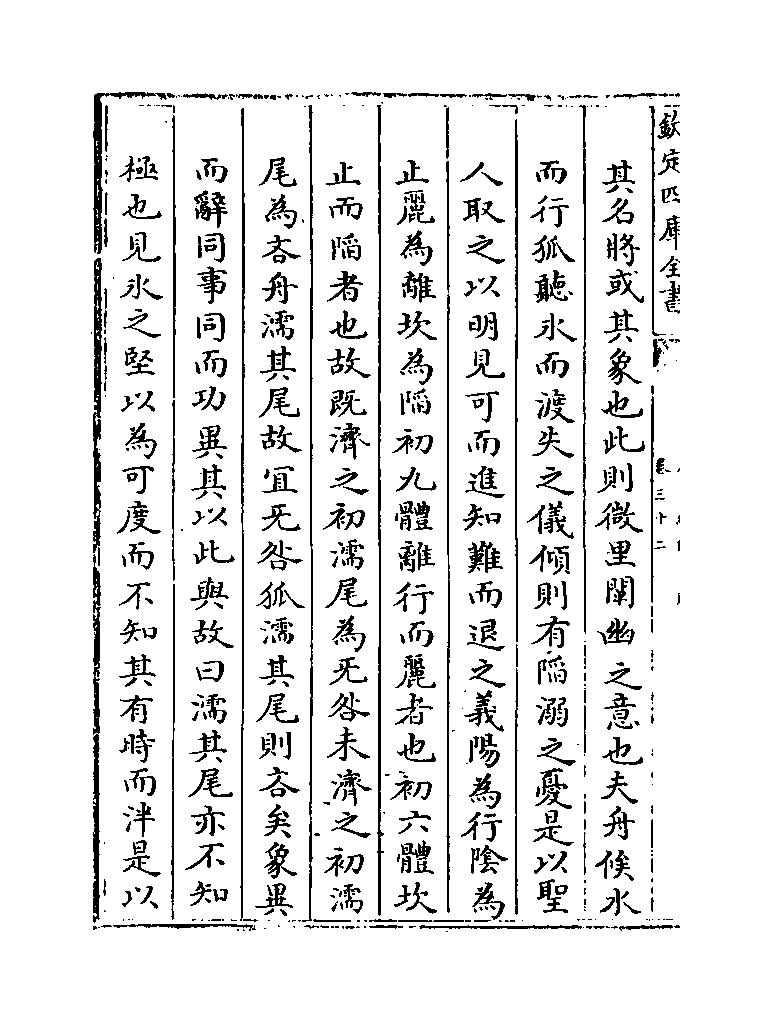 欽定四庫全書
卷三十二
其名將或其象也此則微里闡幽之意也夫舟候水
而行狐聽氷而渡失之儀傾則有陷溺之憂是以聖
人取之以明見可而進知難而退之義陽為行隂為
止麗為離坎為陷初九體離行而麗者也初六體坎
止而陷者也故既濟之初濡尾為旡咎未濟之初濡
尾為吝舟濡其尾故宜旡咎狐濡其尾則吝矣象異
而辭同事同而功異其以此與故曰濡其尾亦不知
極也見氷之堅以為可度而不知其有時而泮是以